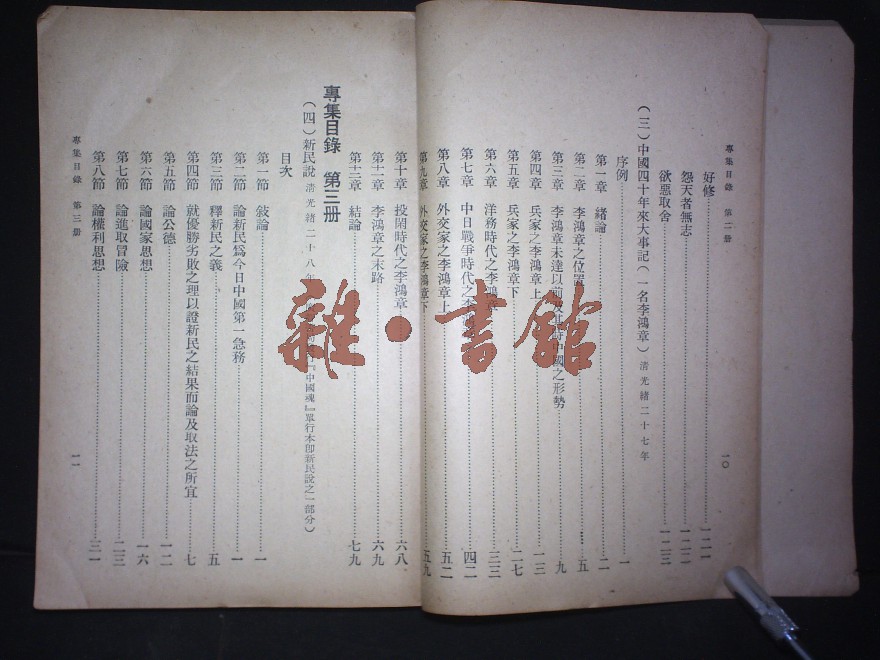 專集目錄 第二册
一〇
好修一二一
怨天者無志一二二
欲惡取舍一二三
（三）中國四十年來大事記（一名李鴻章）清光緒二十七年
序例一
第一章 緒論二
第二章 李鴻章之位置五
第三章 李鴻章未達以前及其時中國之形勢九
第四章 兵家之李鴻章上一三
第五章 兵家之李鴻章下二七
第六章 洋務時代之李鴻章三三
第七章 中日戰爭時代之李鴻章四二
第八章 外交家之李鴻章上五二
第九章 外交家之李鴻章下五九
第十章 投閑時代之李鴻章六八
第十一章 李鴻章之末路六九
第十二章 結論七九
專集目錄 第三册
（四）新民說 清光緒二十八年 『中國魂』單行本卽新民說之一部分）
目次
第一節 敍論一
第二節 論新民爲今日中國第一急務一
第三節 釋新民之義五
第四節 就優勝劣敗之理以證新民之結果而論及取法之所宜七
第五節 論公德一二
第六節 論國家思想一六
第七節 論進取冒險二三
第八節 論權利思想三一
專集目錄 第三册
一一
雜·書館